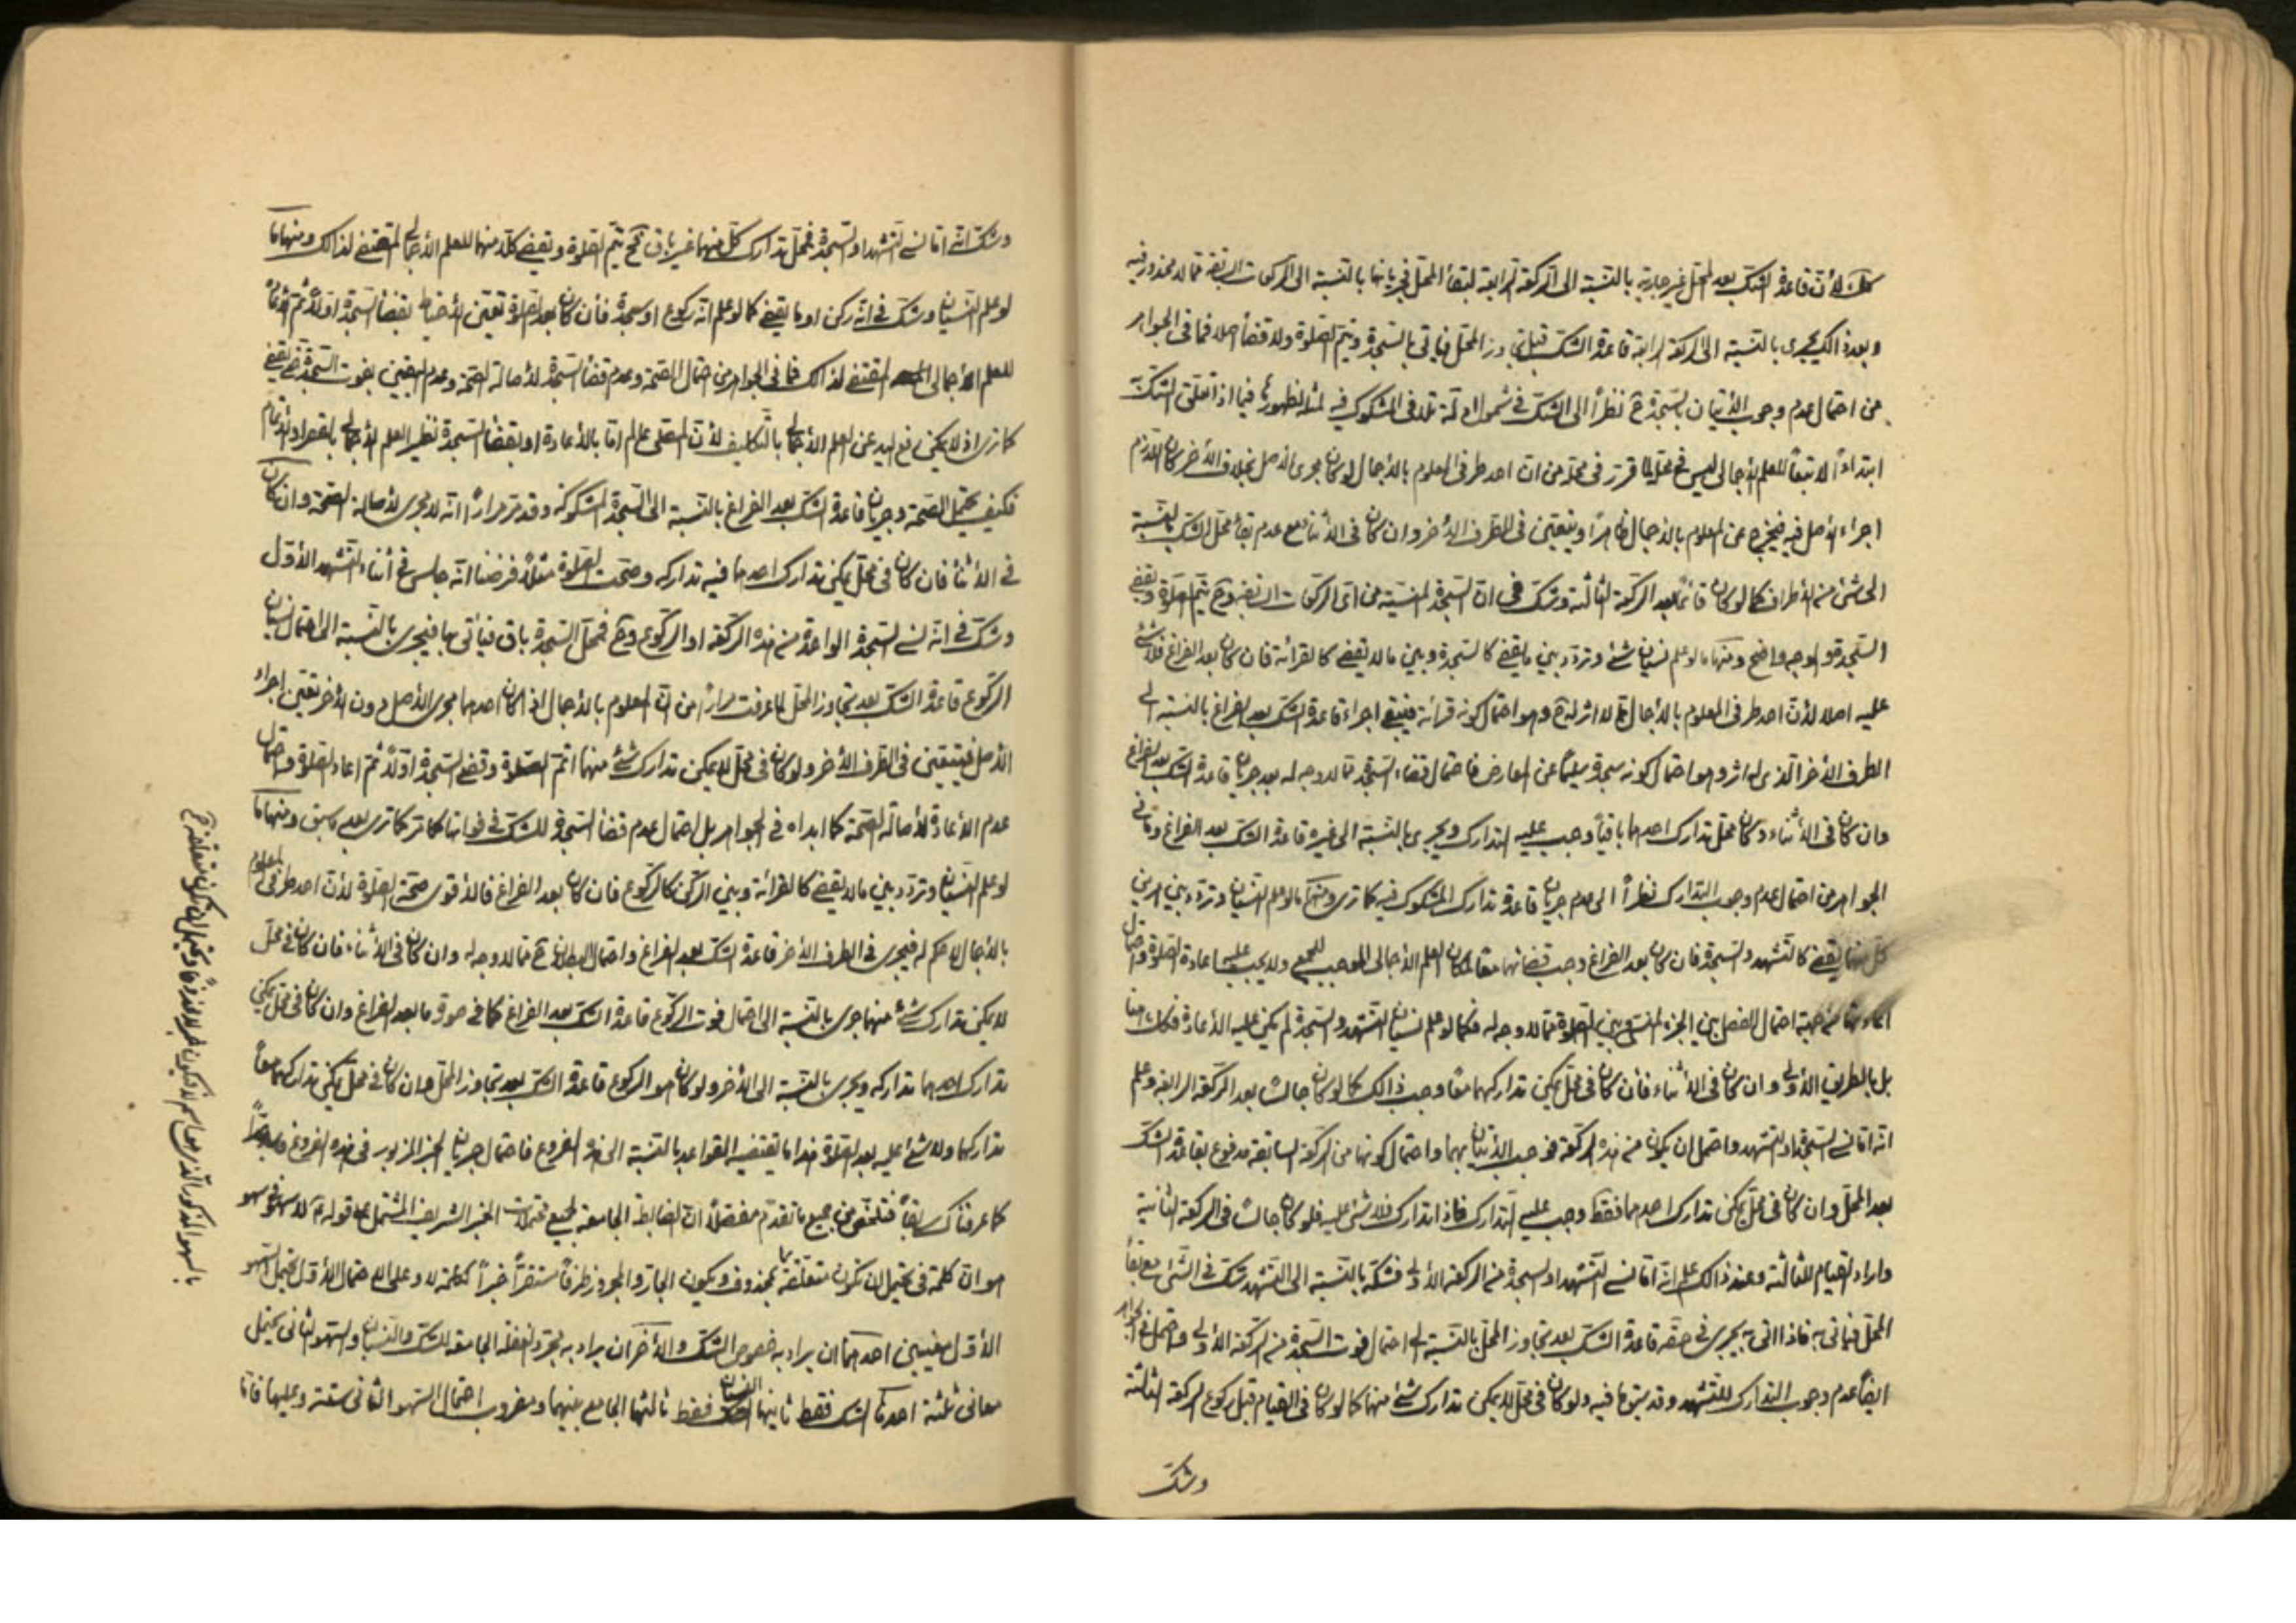 كلّ لأنّ قاعدة الشك بعد المحل غير جارية بالنسبة الى الركعة الرابعة لبقاء المحل فجريانها بالنسبة الى الركعات السابقة مما لا محذور فيه
وبعد ذالك يجرى بالنسبة الى الركعة الرابعة قاعدة الشك قبل تجاوز المحل فيأتي بالسجدة ويتم الصلوة ولا قضاء اصلا فما فى الجواهر
من احتمال عدم وجوب الأتيان بالسجدة ح نظراً الى الشك فى شمول ادلة تلافى المشكوك فيه لمثله لظهورها فيما اذا تعلق الشك
ابتداءاً لا تبعاً للعلم الأجمالى ليس فى محله لما قرر فى محله من ان احد طرفى المعلوم بالأجمال لو كان مجرى الأصل بخلاف الأخر كان اللازم
اجراء الأصل فيه فيخرج عن المعلوم بالأجمال ظاهراً ويتعين فى الطرف الأخر وان كان فى الأثناء مع عدم بقاء محل الشك بالنسبة
الى شئ من الأطراف كما لو كان قائماً بعد الركعة الثالثة وشك فى ان السجدة المنسية من اى الركعات السابقة وح يتم الصلوة ويقضى
السجدة والوجه واضح ومنها ما لو علم نسيان شئ وتردد بين ما يقضى كالسجدة وبين ما لا يقضى كالقرائة فان كان بعد الفراغ فلا شئ
عليه اصلا لأن احد طرفى المعلوم بالأجمال مما لا اثر له ح وهو احتمال كونه قرائة فيبقى اجراء قاعدة الشك بعد الفراغ بالنسبة الى
الطرف الأخر الذى له اثر وهو احتمال كونه سجدة سليماً عن المعارض فاحتمال قضاء السجدة مما لا وجه له بعد جريان قاعدة الشك بعد الفراغ
وان كان فى الأثناء وكان محل تدارك احدهما باقياً وجب عليه التدارك ويجرى بالنسبة الى غيره قاعدة الشك بعد الفراغ وما فى
الجواهر من احتمال عدم وجوب التدارك نظراً الى عدم جريان قاعدة تدارك المشكوك فيه كما ترى ومنها ما لو علم النسيان وتردد بين امرين
كل منهما يقضى كالتشهد والسجدة فان كان بعد الفراغ وجب قضائهما معا لمكان العلم الأجمالى الموجب للجمع ولا يجب عليه اعادة الصلوة واحتمال
من جهة احتمال الفصل بين الجزء المنسى وبين الصلوة مما لا وجه له فكما لو علم نسيان التشهد والسجدة لم يكن عليه الأعادة فكذا هنا
بل بالطريق الأولى وان كان فى الأثناء فأن كان فى محل يمكن تداركهما معا وجب ذالك كما لو كان جالسا بعد الركعة الرابعة وعلم
انه اما نسى السجدة او التشهد واحتمل ان يكون من هذه الركعة فوجب الأتيان بهما واحتمال كونها من الركعة السابقة مدفوع بقاعدة الشك
بعد المحل وان كان فى محل يمكن تدارك احدهما فقط وجب عليه التدارك فاذا تدارك فلا شئ عليه فلو كان جالسا فى الركعة الثانية
واراد القيام للثالثة وعند ذالك علم انه اما نسى التشهد او السجدة من الركعة الأولى فشكه بالنسبة الى التشهد شك فى الشئ مع بقاء
المحل فيأتى به فاذا اتى به يجرى فى حقه قاعدة الشك بعد تجاوز المحل بالنسبة الى احتمال فوت السجدة من الركعة الأولى واحتمل فى الجواهر
ايضاً عدم وجوب التدارك للتشهد وقد سبق ما فيه ولو كان فى محل لا يمكن تدارك شئ منها كما لو كان فى القيام قبل ركوع الركعة الثالثة
وشك
وشك انه اما نسى التشهد او السجدة فمحل تدارك كل منهما غير باق فح يتم الصلوة ويقضى كلا منهما للعلم الأجمالى المقتضى لذالك ومنها ما
لو علم النسيان وشك فى انه ركن او ما يقضى كما لو علم انه ركوع او سجدة فأن كان بعد الصلوة تعين الأحتياط بقضاء السجدة اولا ثم الأعادة
للعلم الأجمالى المقتضى لذالك فما فى الجواهر من احتمال الصحة وعدم قضاء السجدة لأصالة الصحة وعدم اليقين بفوت السجدة حتى يقضى
كما ترى اذ لا يمكن رفع اليد عن العلم الأجمالى بالتكليف لأن المصلى عالم اما بالأعادة او بقضاء السجدة نظير العلم الأجمالى بالقصر او الأتمام
فكيف يحتمل الصحة وجريان قاعدة الشك بعد الفراغ بالنسبة الى السجدة المشكوكة وقد مر مراراً انه لا مجرى لأصالة الصحة وان كان
فى الأثناء فان كان فى محل يمكن تدارك احدهما فيه تداركه وصحت الصلوة مثلاً فرضنا انه جلس فى أثناء التشهد الأول
وشك فى انه نسى السجدة الواحدة من هذه الركعة او الركوع وح فمحل السجدة باق فيأتى بها فيجرى بالنسبة الى احتمال نسيان
الركوع قاعدة الشك بعد تجاوز المحل لما عرفت مراراً من ان المعلوم بالأجمال اذا كان احدهما مجرى الأصل دون الأخر يتعين اجراء
الأصل فيتعين فى الطرف الأخر ولو كان فى محل لا يمكن تدارك شئ منهما اتم الصلوة وقضى السجدة اولاً ثم اعاد الصلوة واحتمال
عدم الأعادة لأصالة الصحة كما ابداه فى الجواهر بل احتمال عدم قضاء السجدة للشك فى فواتها كما مر كما ترى بعد ما سبق ومنها ما
لو علم النسيان وتردد بين ما لا يقضى كالقرائة وبين الركن كالركوع فان كان بعد الفراغ فالأقوى صحة الصلوة لأن احد طرفى المعلوم
بالأجمال لا حكم له فيجرى فى الطرف الأخر قاعدة الشك بعد الفراغ واحتمال البطلان ح مما لا وجه له وان كان فى الأثناء فان كان فى محل
لا يمكن تدارك شئ منهما جرى بالنسبة الى احتمال فوت الركوع قاعدة الشك بعد الفراغ كما فى صورة ما بعد الفراغ وان كان فى محل يمكن
تدارك احدهما تداركه ويجرى بالنسبة الى الأخر ولو كان هو الركوع قاعدة الشك بعد تجاوز المحل وان كان فى محل يمكن تداركهما معاً
تداركهما ولا شئ عليه بعد الصلوة هذا ما يقتضيه القواعد بالنسبة الى هذه الفروع فاحتمال جريان الخبر المزبور فى هذه الفروع
كما عرفناك سابقاً فتلخص من جميع ما تقدم مفصلاً ان الضابطة الجامعة لجميع محتملات الخبر الشريف المشتمل على قوله ع لا سهو فى سهو
هو ان كلمة فى يحتمل ان تكون متعلقة بمحذوف ويكون الجار والمجرور ظرفاً مستقراً خبراً لكلمة لا وعلى الاحتمال الأول يحتمل السهو
الأول معنيين احدهما ان يراد به خصوص الشك والأخر ان يراد به مجرد الغفلة الجامعة للشك والنسيان والسهو الثانى يحتمل
معانى ثلثة احدها الشك فقط ثانيها النسيان فقط ثالثها الجامع بينهما ومضروب احتمال السهو الثانى ستة وعليها فاما